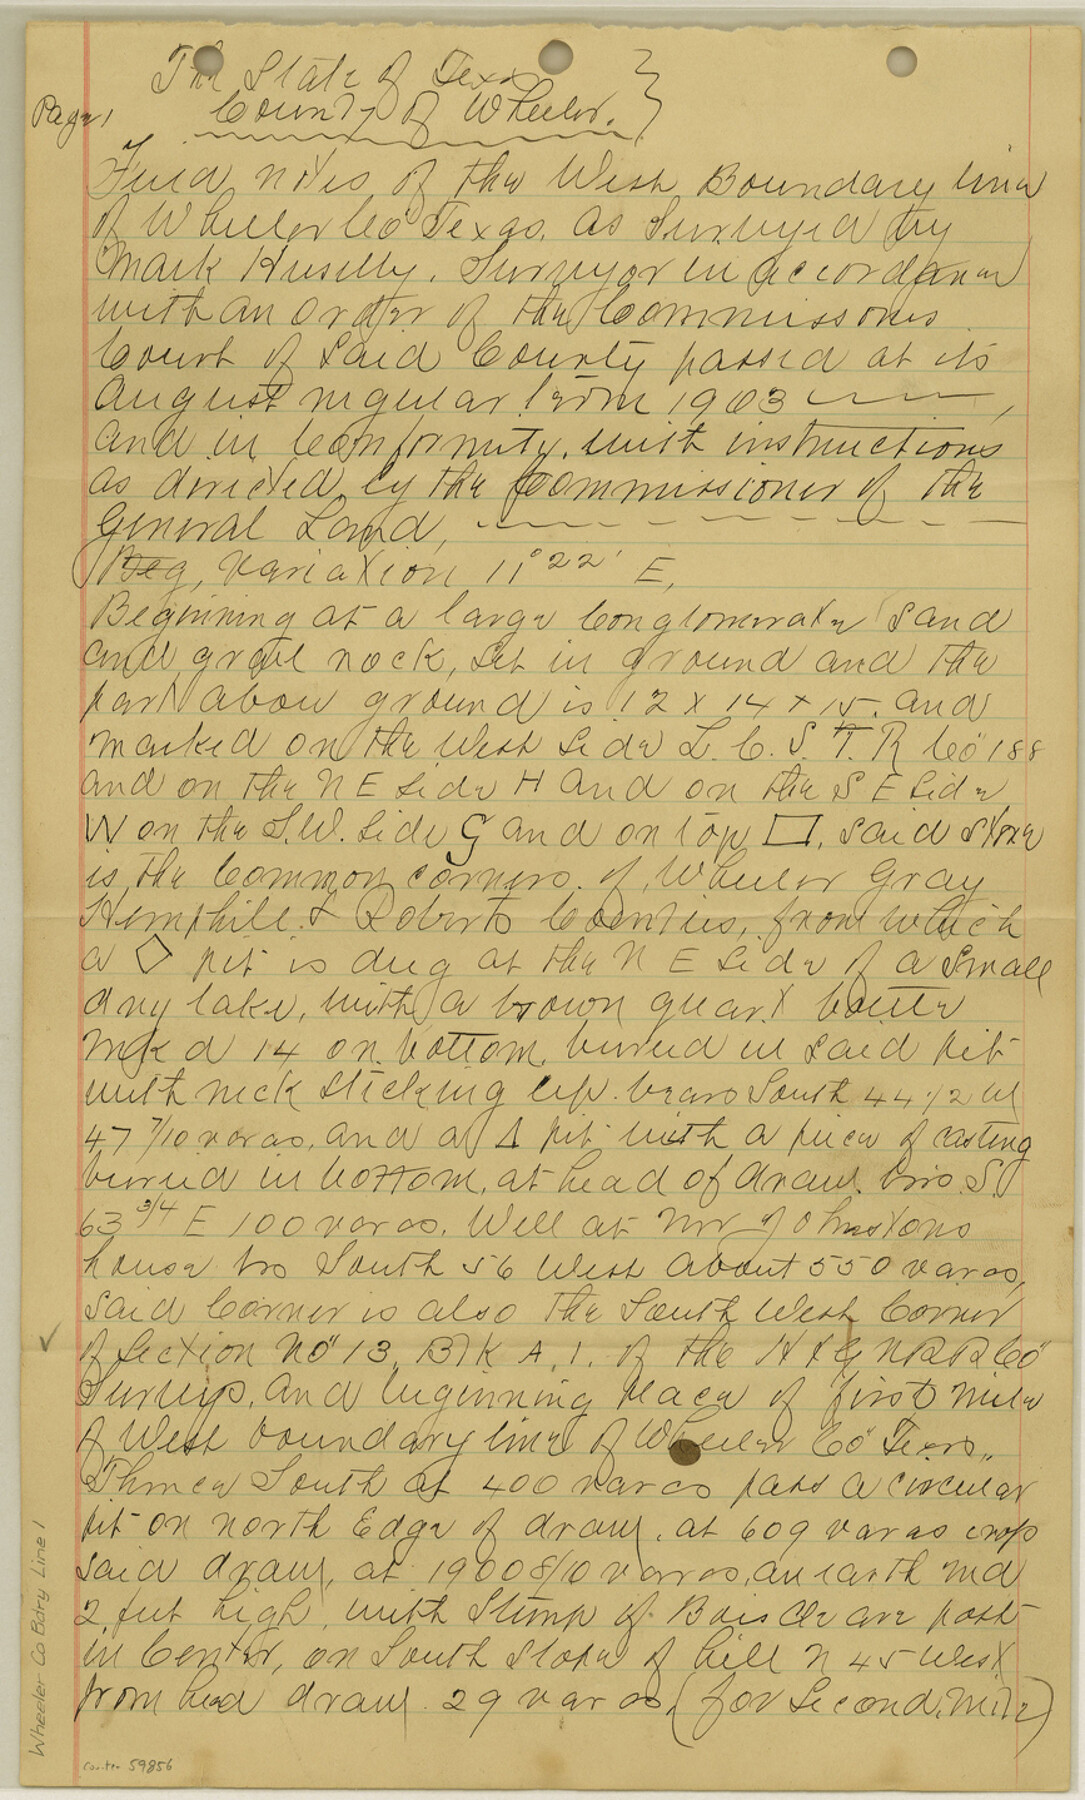 The State of Texas }
County of Wheeler. }
Page 1
Field notes of the West Boundary line
of Wheeler Co Texas. as Surveyed by
Mark Huselby. Surveyor in accordance
with an order of the Commissoners
Court of Said County passed at its
August regular term 1903
and in Conformity, with instructions
as directed by the Commissioner of the
General Land,
Beg, Variation 11° 22' E,
Beginning at a large Conglomerate Sand
and gravel rock, Set in ground and the
part above ground is 12 x 14 x 15. and
marked on the West Side L. C. S. T. R Co 188
and on the N E Side H and on the S E Side
W on the S.W. Side G and on top □, Said Stone
is the Common corners of Wheeler Gray
Hemphill & Roberts Counties, from which
a ◇ pit is dug at the N E Side of a Small
dry lake, with a brown quart bottle
mkd 14 on bottom, buried in Said pit
with neck Sticking up. bears South 44 1/2 W
47 7/10 varas, and a Δ pit with a piece of casting
buried in bottom, at head of draw. brs. S.
63 3/4 E 100 varas. Well at Mr Johnstons
house brs South 56 West about 550 varas,
Said Corner is also the South West Corner
of Section No 13, Blk A. 1. of the H & G N R R Co
Surveys, and beginning place of first mile
of West boundary line of Wheeler Co Texas,,
Thence South at 400 varas pass a circular
pit on north Edge of draw, at 609 varas cross
Said draw, at 1900 8/10 varas, an earth md
2 feet high, with Stump of Bois De arc post
in Center, on South Slope of hill N 45 West
from head draw 29 varas, (for Second, Mile)
Wheeler Co Bdry Line 1
counter 59856